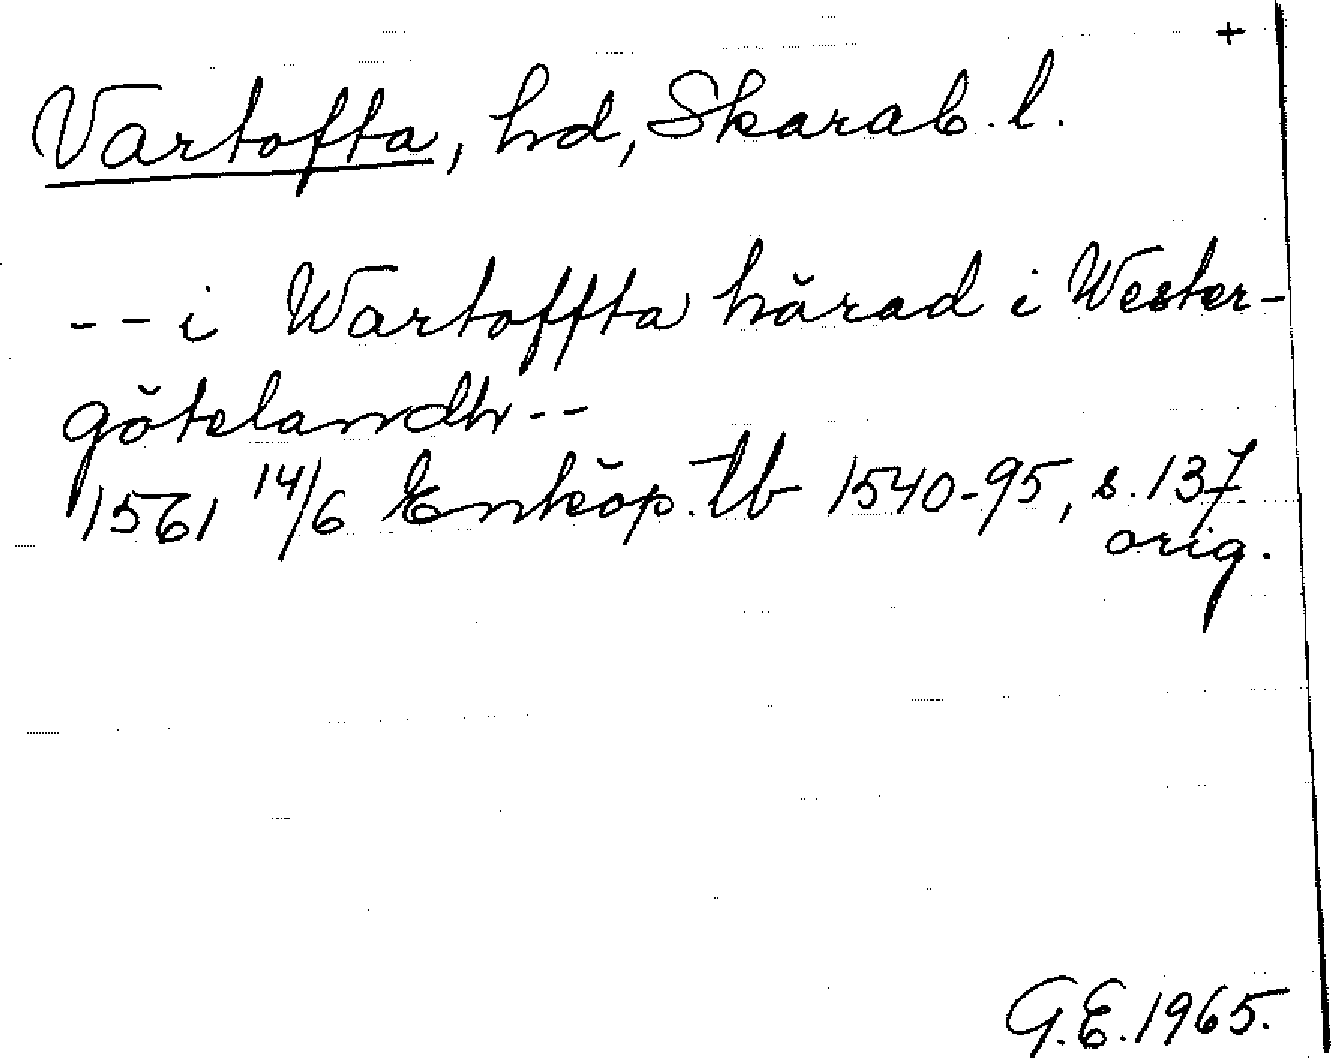 +
Vartofta, hd, Skarab. l.
-- i Wartoffta härad i Wester-
götelandh --
1561 14/6 Enköp. tb 1540-95, s. 137
orig.
G.E. 1965.